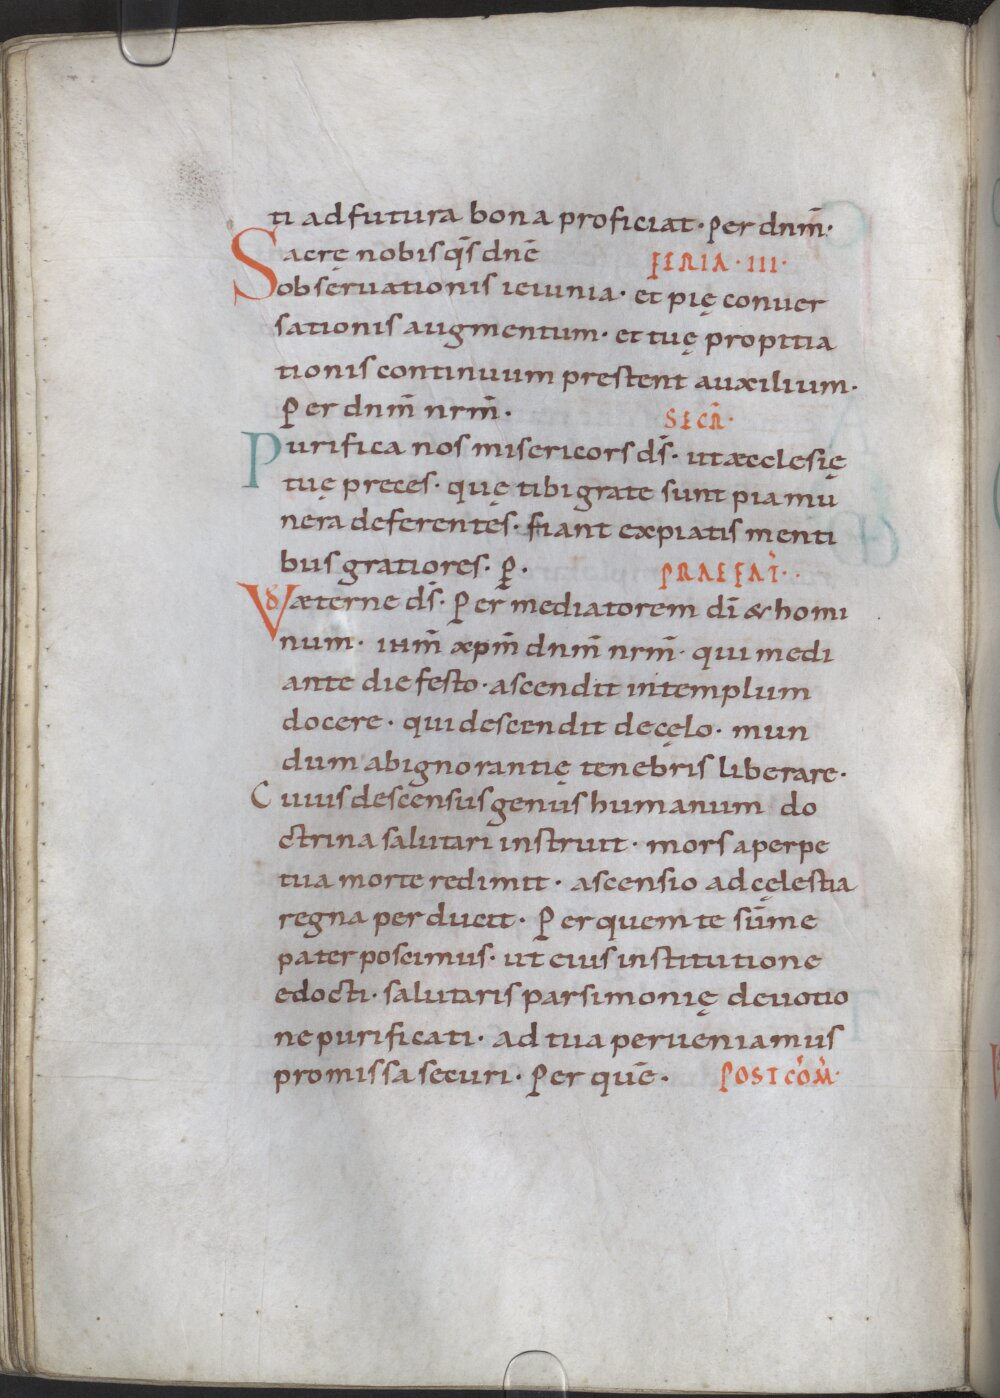 ti ad futura bona proficiat· Per dnm̄·
Sacrę nobis qs̄ dnē FERIA · III ·
observationis ieiunia· et pię conver
sationis augmentum· et tuę propitia
tionis continuum prestent auxilium·
Per dnm̄ nrm̄· SECR̄·
Purifica nos misericors ds̄· ut æcclesię
tuę preces· quę tibi grate sunt pia mu
nera deferentes· fiant expiatis menti
bus gratiores· P̱· PRAEFAT̄··
VD æterne ds̄· Per mediatorem dī & homi
num· ihm̄ xpm̄ dnm̄ nrm̄· qui medi
ante die festo· ascendit in templum
docere· qui descendit de cęlo· mun
dum ab ignorantię tenebris liberare·
Cuius descensus genus humanum do
ctrina salutari instruit· mors a perpe
tua morte redimit· ascensio ad cęlestia
regna perducit· Per quem te sūme
pater poscimus· ut eius institutione
edocti· salutaris parsimonię devotio
ne purificati· ad tua perveniamus
promissa securi· Per quē· POST COM̄·